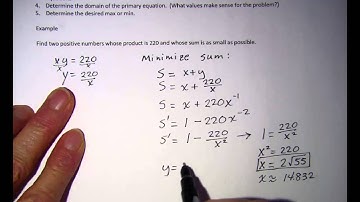 4. Determine the domain of the primary equation. (What values make sense for the problem?)
5. Determine the desired max or min.
Example
Find two positive numbers whose product is 220 and whose sum is as small as possible.
xy/x = 220/x
y = 220/x
Minimize sum:
S = x+y
S = x + 220/x
S = x + 220x⁻¹
S' = 1 − 220x⁻²
S' = 1 − 220/x² → 1 = 220/x²
x² = 220
x = 2√55
x ≈ 14.832
y =